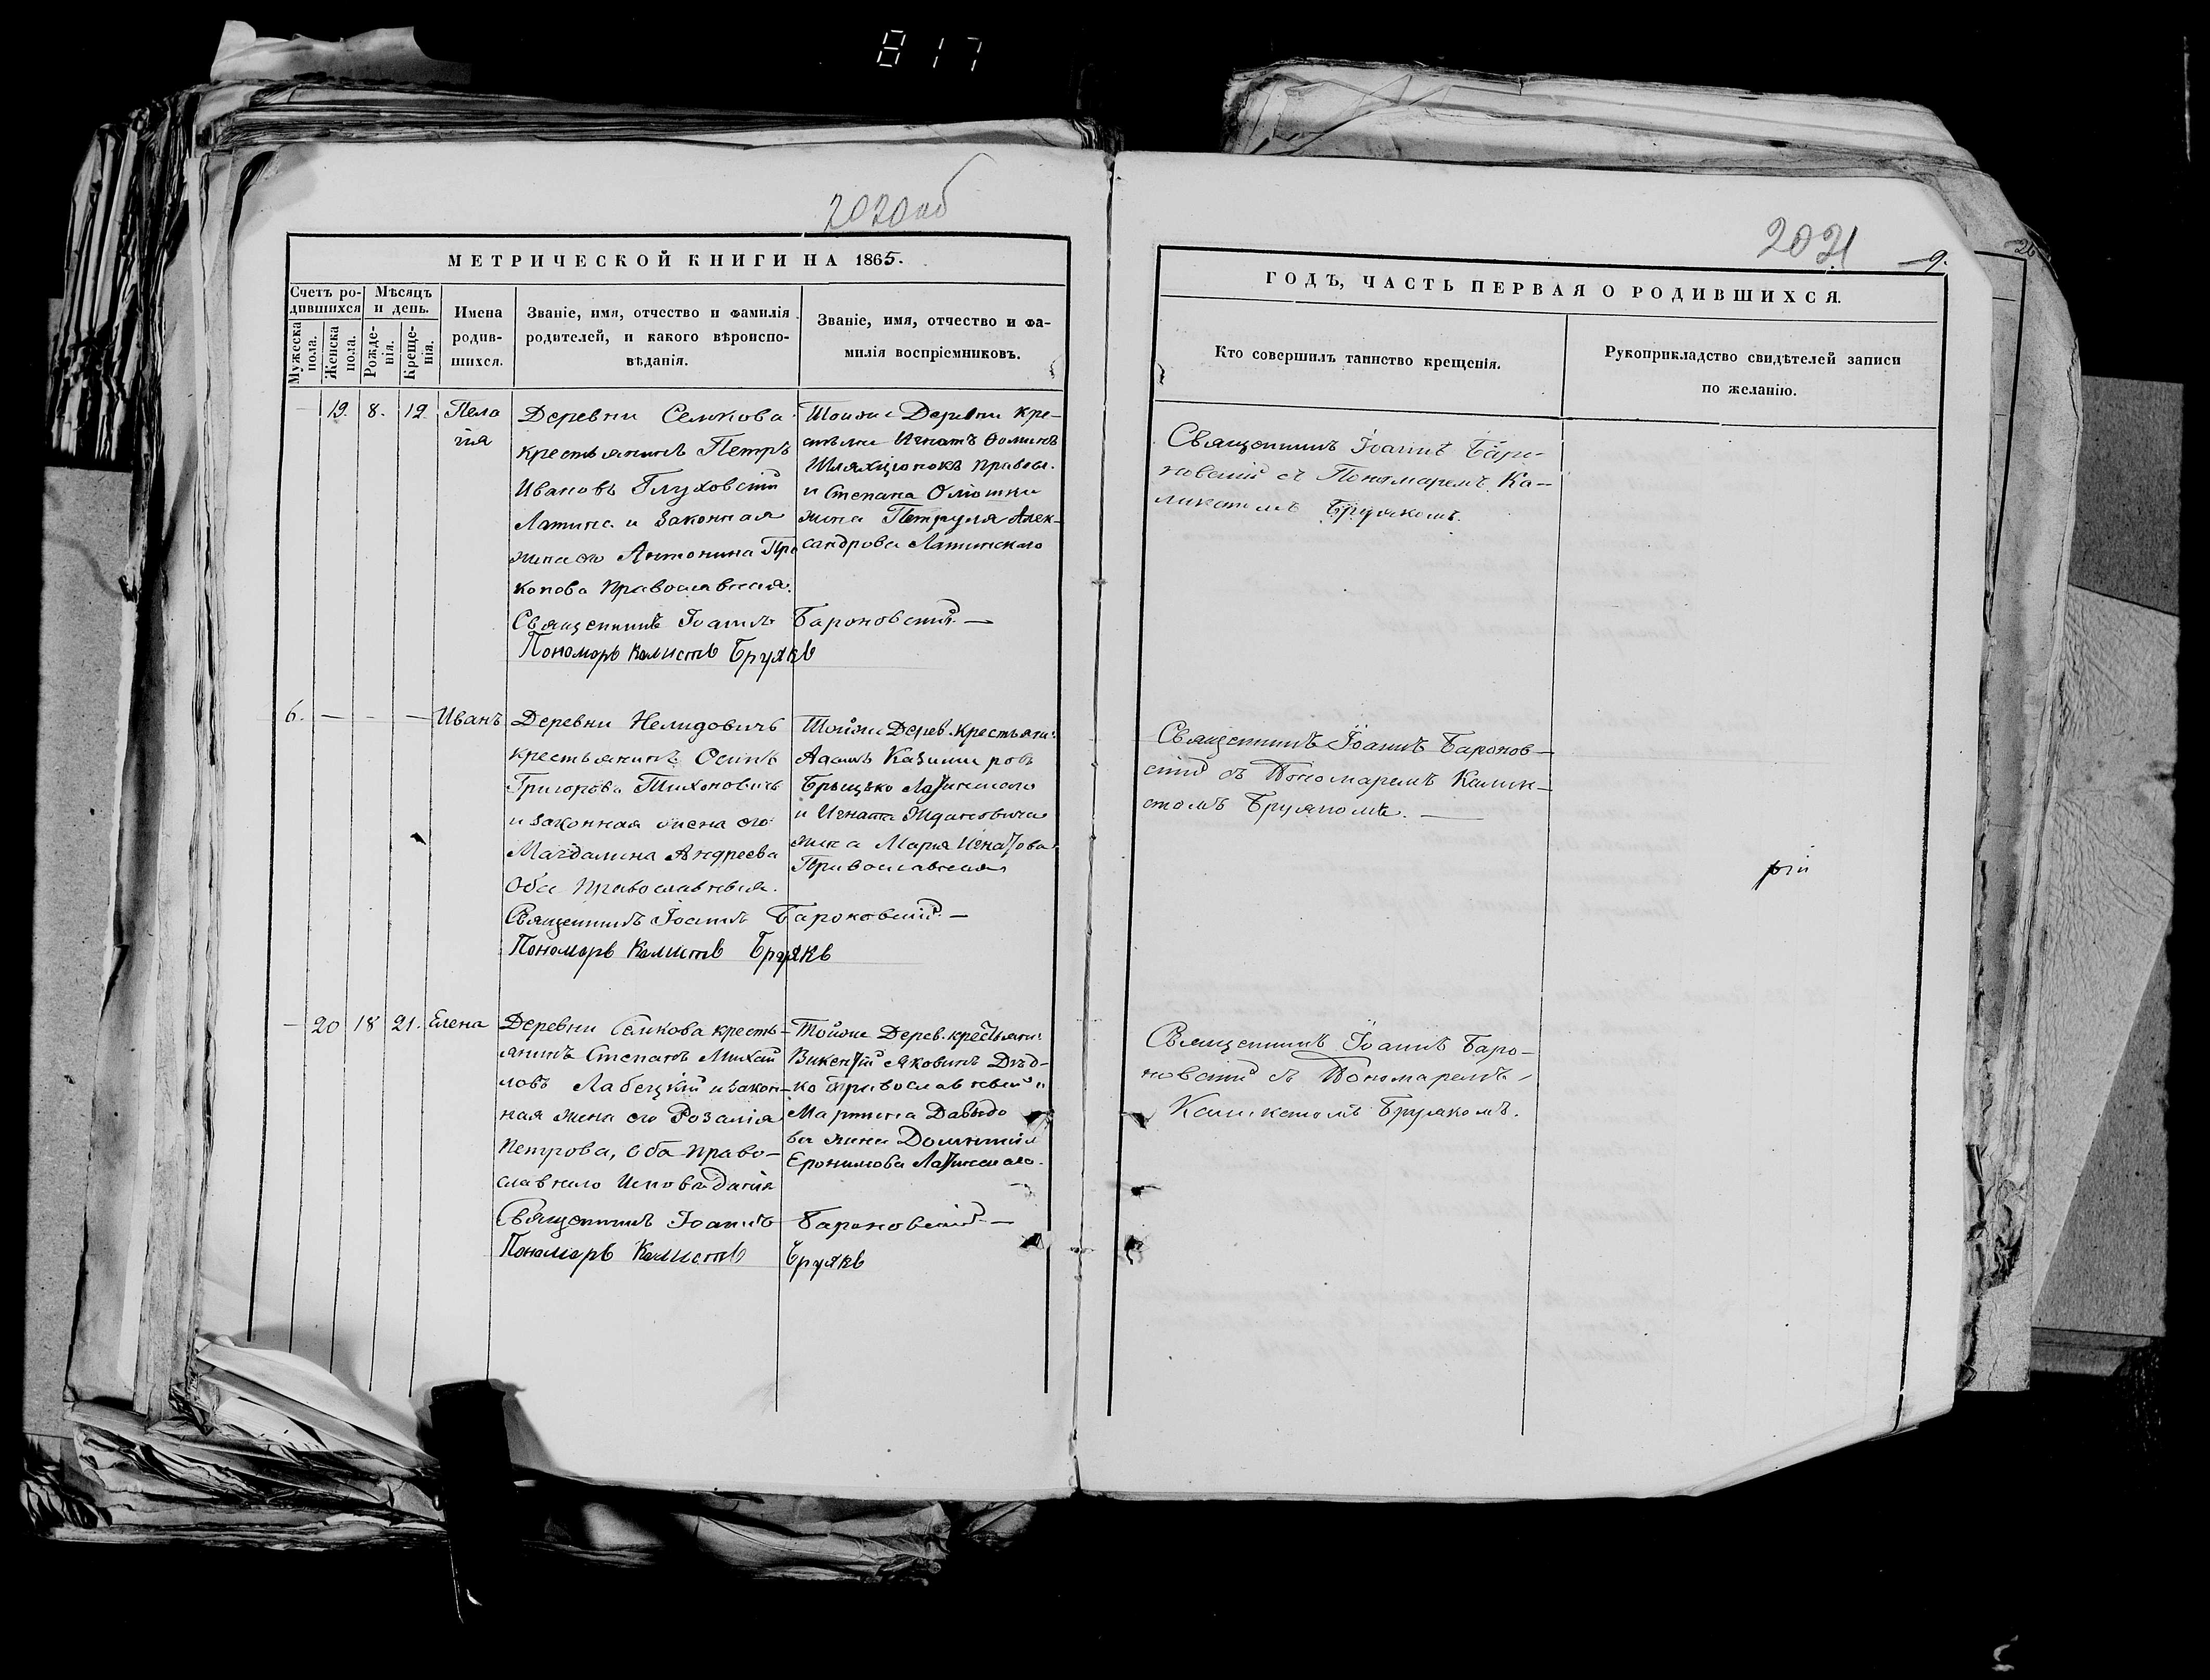 817
2020об
МЕТРИЧЕСКОЙ КНИГИ НА 1865.
Счетъ ро-
дившихся
Мѣсяцъ
и день.
Мужеска
пола.
Женска
пола.
Рожде-
нія.
Креще-
нія.
Имена
родив-
шихся.
Званіе, имя, отчество и фамилія
родителей, и какого вѣроиспо-
вѣданія.
Званіе, имя, отчество и фа-
милія воспріемниковъ.
19. 8. 12. Пела
гія
Деревни Селкова
крестьянинъ Петръ
Ивановъ Глуховскій
и Законная
жена его Антонина Про
копова Православная.
Священникъ Іоаннъ Бароновскій. —
Пономарь Калистъ Брулякъ
Тойже Деревни Кре-
Игнатъ Ѳоминъ
Шляхционокъ Правосл.
и Степана
жена Петруля Алек-
сандрова Латинскаго
6. — - — Иванъ
Деревни Нелидовичъ
крестьянинъ Осипъ
Григорова Тихоновичъ
и законная жена его
Магдалина Андреева
Оба Православныя.
Священникъ Іоаннъ Бароновскій. —
Пономарь Калистъ Брулякъ
Тойже Дерев. Крестьяни:
Адамъ Казимировъ
Брыцько Латинскаго
и Игната Ждановича
жена Марія Игнатова
Православная
— 20 18 21. Елена
Деревни Селкова кресть-
янинъ Степанъ Михай
ловъ Лабецкій и закон-
ная жена его Розалія
Петрова, Оба Право-
славнаго Исповѣданія
Священникъ Іоаннъ Бароновскій. —
Пономарь Калистъ Брулякъ
Тойже Дерев. крестьяни:
Викентій Яковинъ Дѣд-
ко Православный и
Мартина Давыдо
ва жена
Еронимова Латинскаго.
2021
—9.
26
ГОДЪ, ЧАСТЬ ПЕРВАЯ О РОДИВШИХСЯ.
Кто совершилъ таинство крещенія.
Рукоприкладство свидѣтелей записи
по желанію.
Священникъ Іоаннъ Баро-
новскій съ Пономаремъ Ка-
ликстомъ Брулякомъ.
Священникъ Іоаннъ Баронов-
скій съ Пономаремъ Каликс-
томъ Брулякомъ. —
Священникъ Іоаннъ Баро-
новскій съ Пономаремъ
Каликстомъ Брулякомъ.